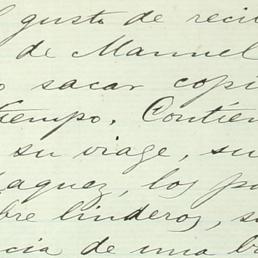 l gusto de reci
de Manuel
o sacar copi
tiempo. Contien
su viage, su
laquez, los po
bre linderos, s
cia de una b